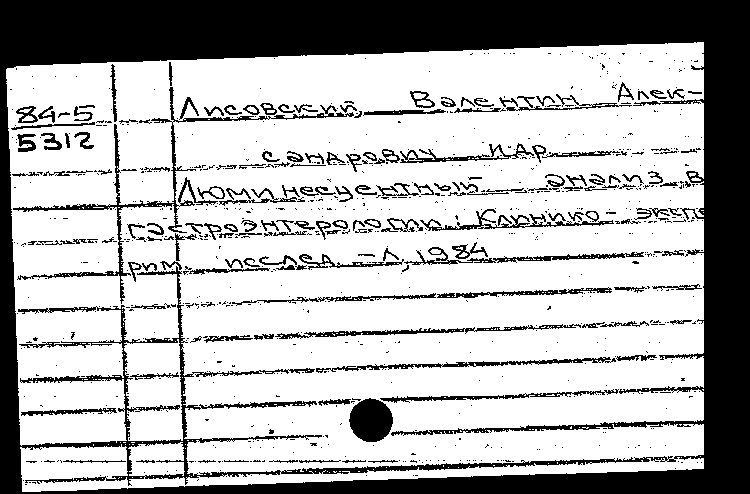 84-5
5312
Лисовский, Валентин Алек-
сандрович и др
Люминесцентный анализ в
гастроэнтерологии: Клинико-экспе
рим. исслед. - Л, 1984